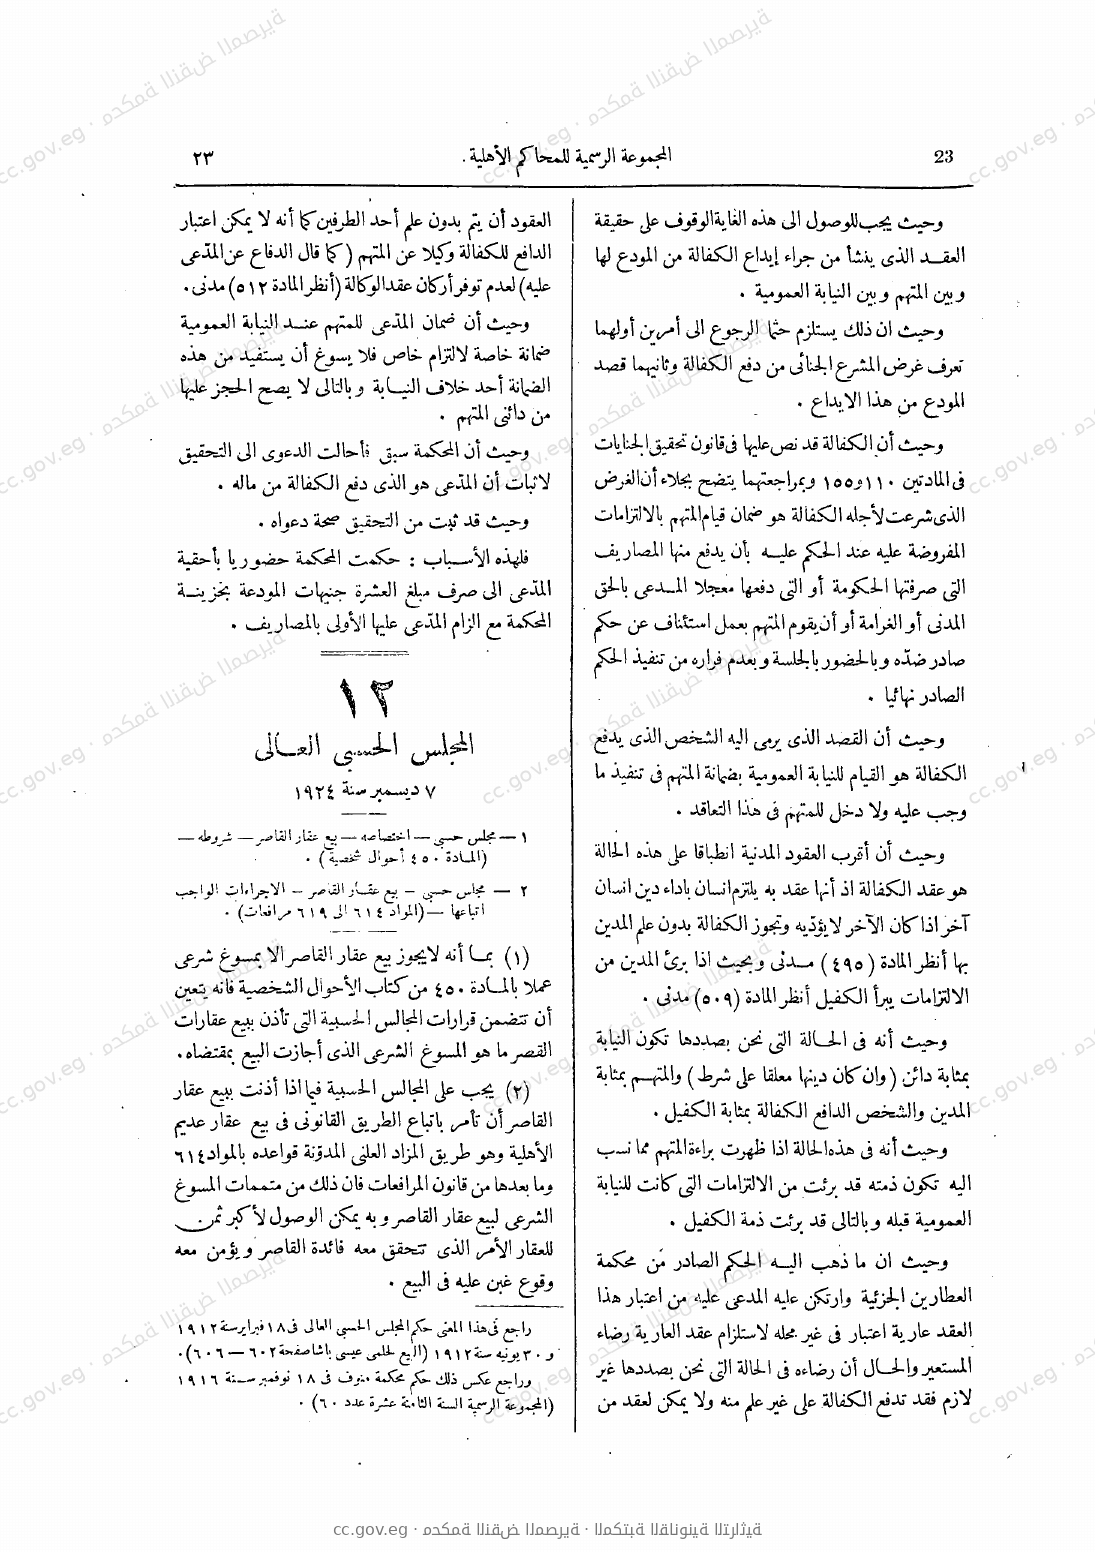 23
المجموعة الرسمية للمحاكم الأهلية.
٢٣
وحيث يجب للوصول الى هذه الغاية الوقوف على حقيقة
العقد الذى ينشأ من جراء إيداع الكفالة من المودع لها
وبين المتهم وبين النيابة العمومية .
وحيث ان ذلك يستلزم حتما الرجوع الى أمرين أولهما
تعرف غرض المشرع الجنائى من دفع الكفالة وثانيهما قصد
المودع من هذا الايداع .
وحيث أن الكفالة قد نص عليها فى قانون تحقيق الجنايات
فى المادتين ١١٠ و١٥٥ وبمراجعتهما يتضح بجلاء أن الغرض
الذى شرعت لأجله الكفالة هو ضمان قيام المتهم بالالتزامات
المفروضة عليه عند الحكم عليه بأن يدفع منها المصاريف
التى صرفتها الحكومة أو التى دفعها معجلا المدعى بالحق
المدنى أو الغرامة أو أن يقوم المتهم بعمل استئناف عن حكم
صادر ضدّه وبالحضور بالجلسة وبعدم فراره من تنفيذ الحكم
الصادر نهائيا .
وحيث أن القصد الذى يرمى اليه الشخص الذى يدفع
الكفالة هو القيام للنيابة العمومية بضمانة المتهم فى تنفيذ ما
وجب عليه ولا دخل للمتهم فى هذا التعاقد .
وحيث أن أقرب العقود المدنية انطباقا على هذه الحالة
هو عقد الكفالة اذ أنها عقد به يلتزم انسان باداء دين انسان
آخر اذا كان الآخر لا يؤدّيه وتجوز الكفالة بدون علم المدين
بها أنظر المادة (٤٩٥) مدنى وبحيث اذا برئ المدين من
الالتزامات يبرأ الكفيل أنظر المادة (٥٠٩) مدنى .
وحيث أنه فى الحالة التى نحن بصددها تكون النيابة
بمثابة دائن (وان كان دينها معلقا على شرط) والمتهم بمثابة
المدين والشخص الدافع الكفالة بمثابة الكفيل .
وحيث أنه فى هذه الحالة اذا ظهرت براءة المتهم مما نسب
اليه تكون ذمته قد برئت من الالتزامات التى كانت للنيابة
العمومية قبله وبالتالى قد برئت ذمة الكفيل .
وحيث ان ما ذهب اليه الحكم الصادر من محكمة
العطارين الجزئية وارتكن عليه المدعى عليه من اعتبار هذا
العقد عارية اعتبار فى غير محله لاستلزام عقد العارية رضاء
المستعير والحال أن رضاءه فى الحالة التى نحن بصددها غير
لازم فقد تدفع الكفالة على غير علم منه ولا يمكن لعقد من
العقود أن يتم بدون علم أحد الطرفين كما أنه لا يمكن اعتبار
الدافع للكفالة وكيلا عن المتهم (كما قال الدفاع عن المدّعى
عليه) لعدم توفر أركان عقد الوكالة (أنظر المادة ٥١٢) مدنى.
وحيث أن ضمان المدّعى للمتهم عند النيابة العمومية
ضمانة خاصة لالتزام خاص فلا يسوغ أن يستفيد من هذه
الضمانة أحد خلاف النيابة وبالتالى لا يصح الحجز عليها
من دائنى المتهم .
وحيث أن المحكمة سبق فأحالت الدعوى الى التحقيق
لاثبات أن المدّعى هو الذى دفع الكفالة من ماله .
وحيث قد ثبت من التحقيق صحة دعواه .
فلهذه الأسباب : حكمت المحكمة حضوريا بأحقية
المدّعى الى صرف مبلغ العشرة جنيهات المودعة بخزينة
المحكمة مع الزام المدّعى عليها الأولى بالمصاريف .
١٢
المجلس الحسبى العالى
٧ ديسمبر سنة ١٩٢٤
١ — مجلس حسبى — اختصاصه — بيع عقار القاصر — شروطه —
(المادة ٤٥٠ أحوال شخصية) .
٢ — مجلس حسبى — بيع عقار القاصر — الاجراءات الواجب
اتباعها — (المواد ٦١٤ الى ٦١٩ مرافعات) .
(١) بما أنه لا يجوز بيع عقار القاصر الا بمسوغ شرعى
عملا بالمادة ٤٥٠ من كتاب الأحوال الشخصية فانه يتعين
أن تتضمن قرارات المجالس الحسبية التى تأذن ببيع عقارات
القصر ما هو المسوغ الشرعى الذى أجازت البيع بمقتضاه.
(٢) يجب على المجالس الحسبية فيما اذا أذنت ببيع عقار
القاصر أن تأمر باتباع الطريق القانونى فى بيع عقار عديم
الأهلية وهو طريق المزاد العلنى المدوّنة قواعده بالمواد ٦١٤
وما بعدها من قانون المرافعات فان ذلك من متممات المسوغ
الشرعى لبيع عقار القاصر وبه يمكن الوصول لأكبر ثمن
للعقار الأمر الذى تتحقق معه فائدة القاصر ويؤمن معه
وقوع غبن عليه فى البيع .
راجع فى هذا المعنى حكم المجلس الحسبى العالى فى ١٨ فبراير سنة ١٩١٢
و ٣٠ يونيه سنة ١٩١٢ (البيع لحلمى عيسى باشا صفحة ٦٠٢ — ٦٠٦).
وراجع عكس ذلك حكم محكمة منوف فى ١٨ نوفمبر سنة ١٩١٦
(المجموعة الرسمية السنة الثامنة عشرة عدد ٦٠) .
cc.gov.eg · محكمة النقض المصرية · المكتبة القانونية التراثية